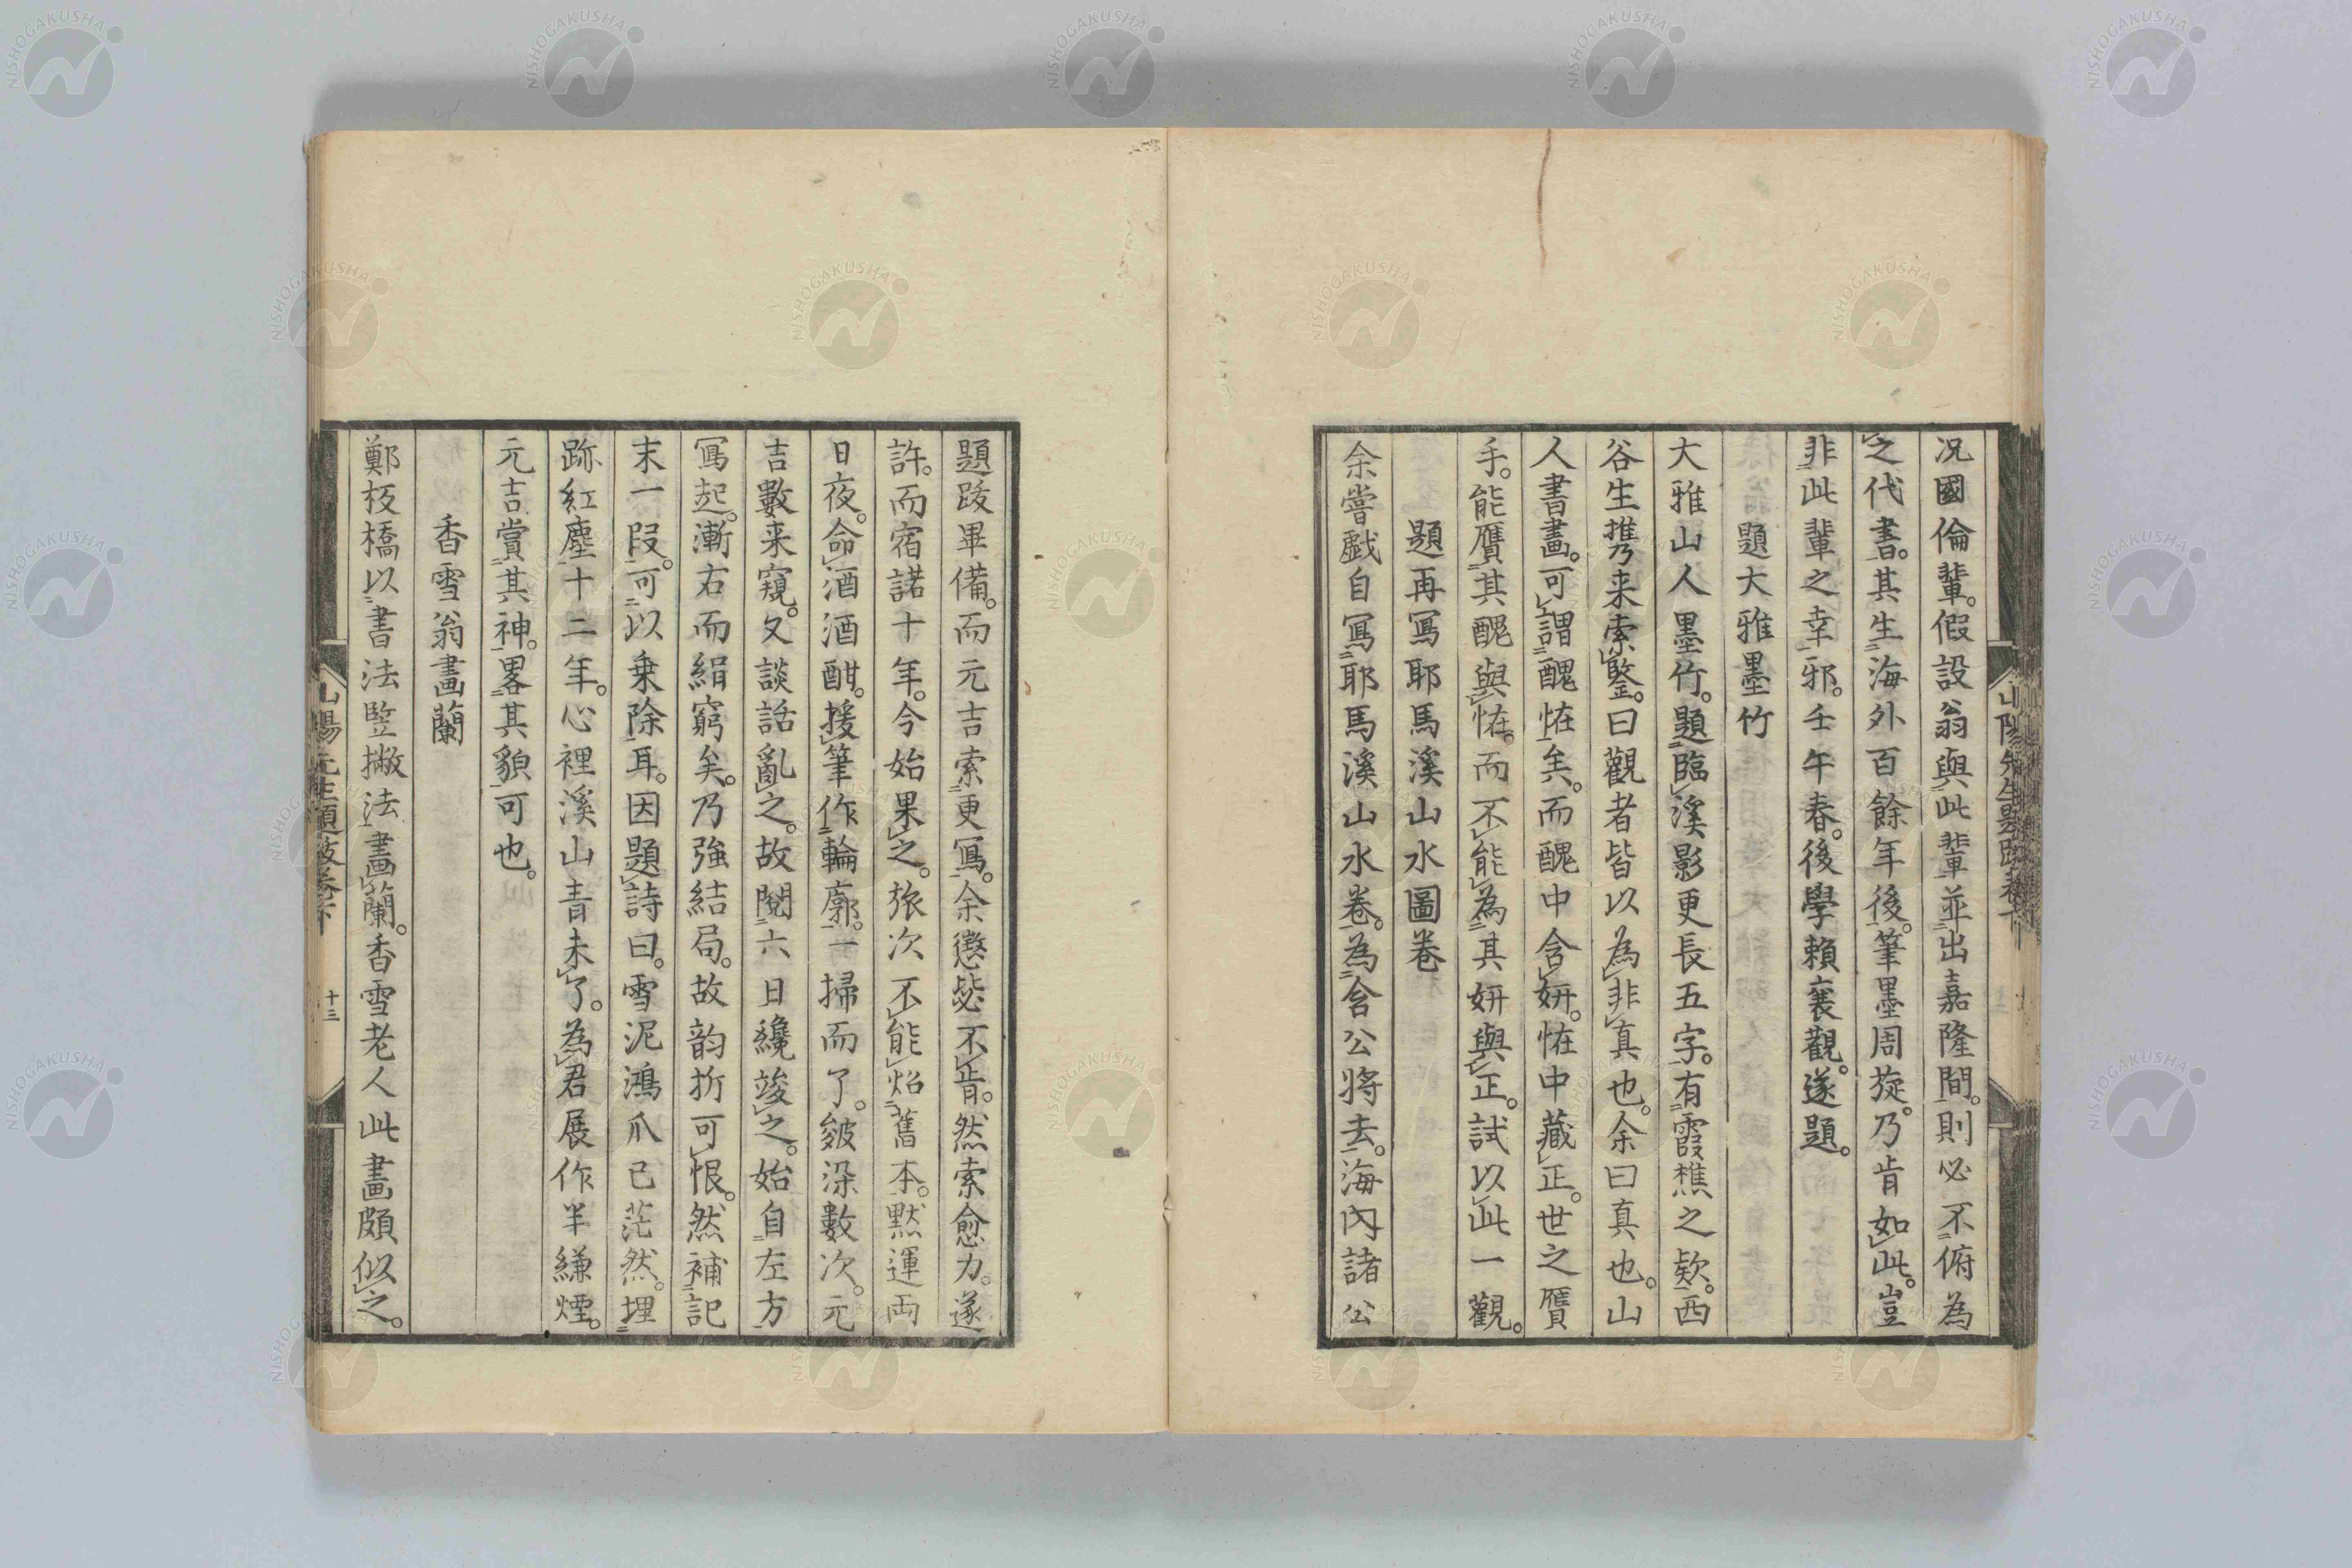 況國倫輩。假設翁與此輩並出嘉隆間。則必不俯為
之代書。其生海外百餘年後。筆墨周旋。乃肯如此。豈
非此輩之幸邪。壬午春。後學賴襄觀。遂題。
題大雅墨竹
大雅山人墨竹。題臨溪影更長五字。有霞樵之欵。西
谷生携来索鑒。曰觀者皆以為非真也。余曰真也。山
人書畫。可謂醜恠矣。而醜中含妍。恠中藏正。世之贋
手。能贋其醜與恠。而不能為其妍與正。試以此一觀。
題再寫耶馬溪山水圖卷
余嘗戲自寫耶馬溪山水卷。為含公將去。海內諸公
山陽先生題跋卷下
題跋畢備。而元吉索更寫。余懲毖不肯。然索愈力。遂
許。而宿諾十年。今始果之。旅次不能炤舊本。默運両
日夜。命酒酒酣。援筆作輪廓。一掃而了。皴染數次。元
吉數来窺。又談話亂之。故閱六日纔竣之。始自左方
寫起。漸右而絹窮矣。乃強結局。故韵折可恨。然補記
末一段。可以乗除耳。因題詩曰。雪泥鴻爪已茫然。埋
跡紅塵十二年。心裡溪山青未了。為君展作半縑煙。
元吉賞其神。畧其貌可也。
香雪翁畫蘭
鄭板橋以書法竪撇法畫蘭。香雪老人此畫頗似之。
山陽先生題跋卷下
十三
NISHOGAKUSHA